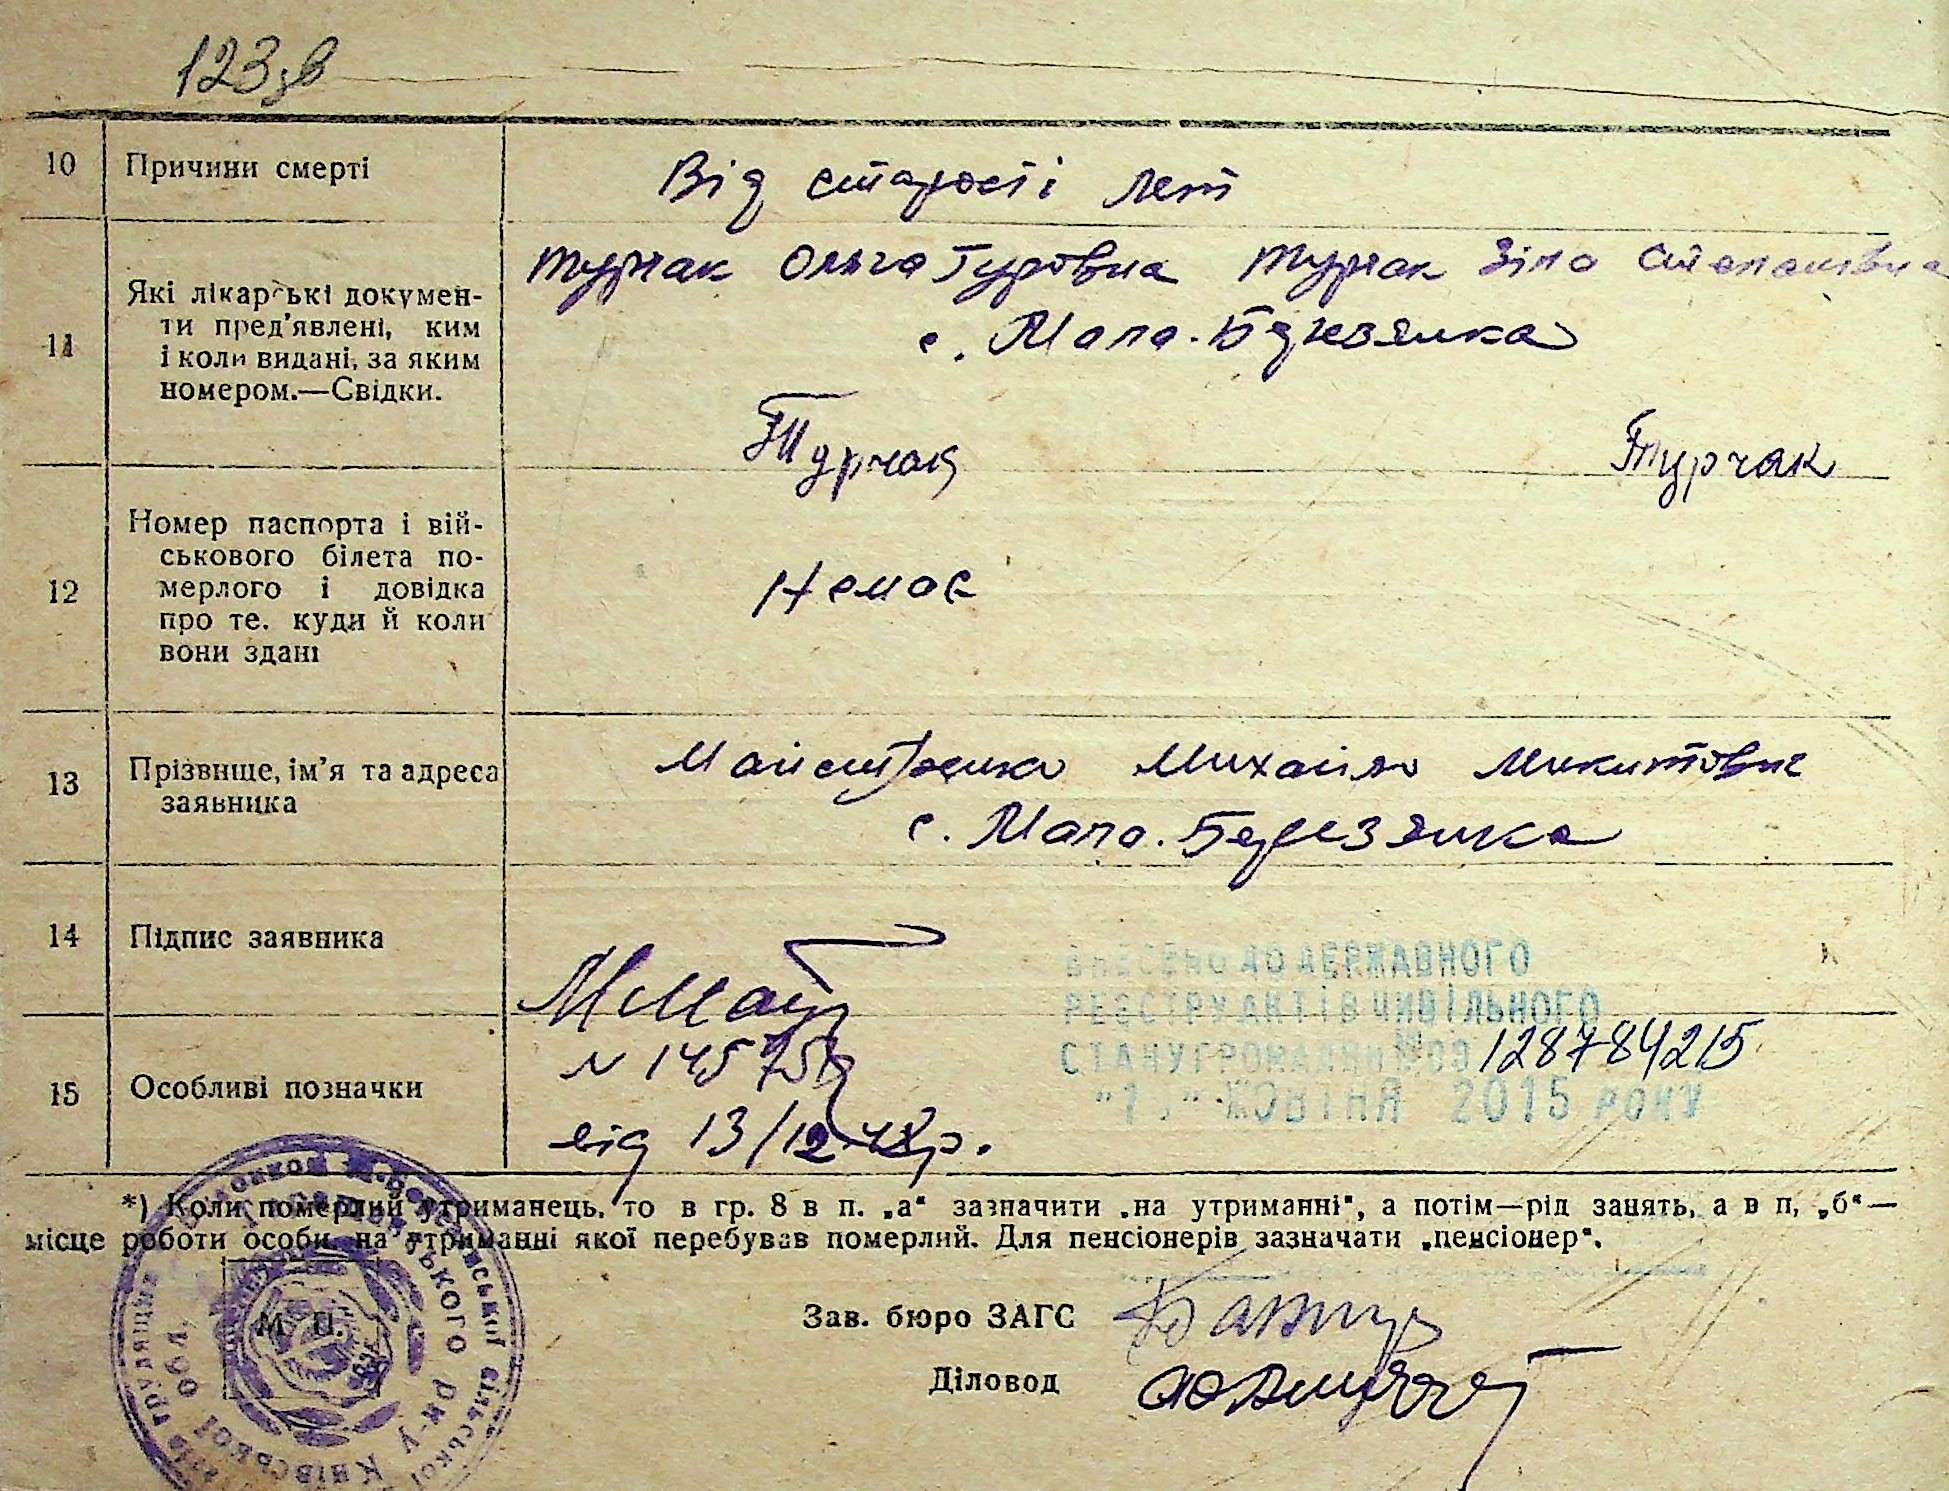 123 зв
10 Причини смерті Від старості лет
11 Які лікарські докумен-
ти пред'явлені, ким
і коли видані, за яким
номером.—Свідки.
Турчак Ольга Гуровна Турчак Зіна Степановна
с. Мала-Березянка
Турчак Турчак
12 Номер паспорта і вій-
ськового білета по-
мерлого і довідка
про те. куди й коли
вони здані
Немає
13 Прізвище, ім'я та адреса
заявника
Михайло Микитовна
с. Мала. Березянка
14 Підпис заявника
ВНЕСЕНО ДО ДЕРЖАВНОГО
РЕЄСТРУ АКТІВ ЦИВІЛЬНОГО
СТАНУ ГРОМАДЯН №00128784215
ЖОВТНЯ 2015 РОКУ
15 Особливі позначки
від 13/12
*) Коли померлий утриманець. то в гр. 8 в п. „а“ зазначити „на утриманні“, а потім—рід занять, а в п, „б“—
місце роботи особи, на утриманні якої перебував померлий. Для пенсіонерів зазначати „пенсіонер“.
М. П.
Зав. бюро ЗАГС
Діловод
сільської
р-у Київської обл.